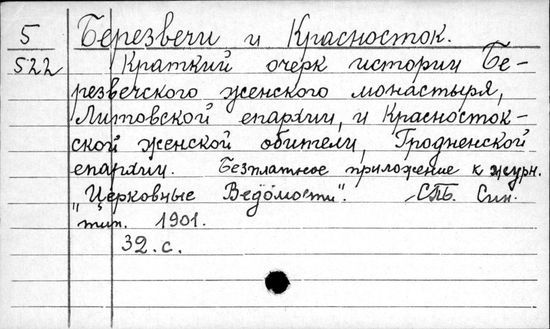 5 Березвечи и Красносток.
522 Краткий очерк истории Бе-
резвечского женского монастыря,
Литовской епархии, и Красносток-
ской женской обители, Гродненской
епархии. Безплатное приложение к журн.
"Церковные Ведомости". СПБ. Син.
тип. 1901.
32. с.